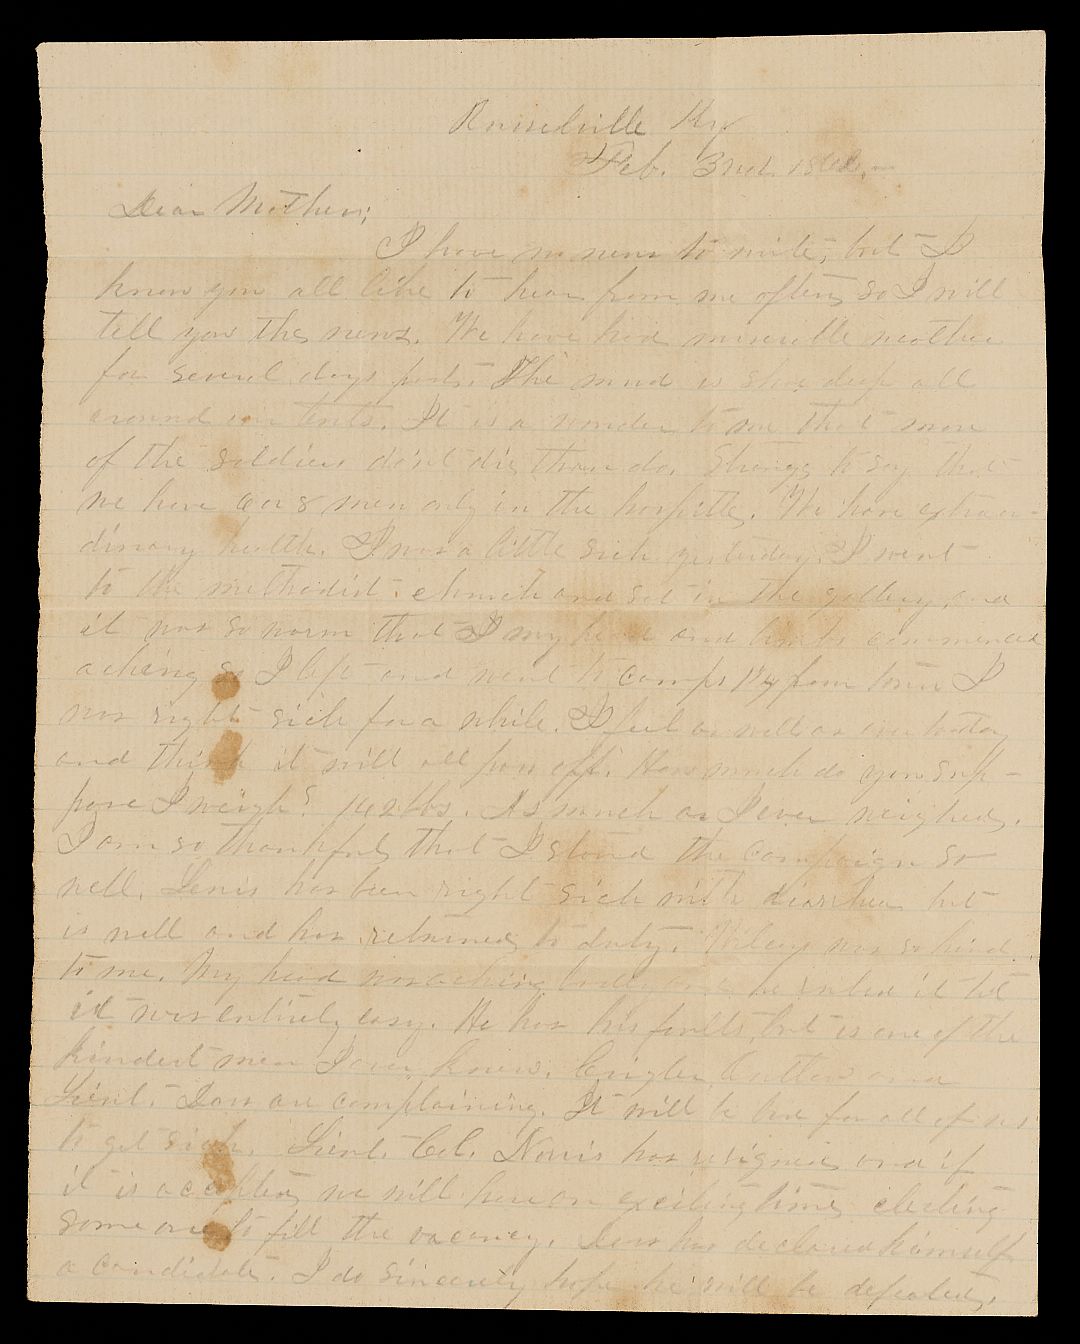 Russelville Ky
Feb. 3rd 1862
Dear Mother;
I have no news to write, but I
know you all like to hear from me often, so I will
tell you the news. We have had miserable weather
for several days past. The mud is shoe deep all
around our tents. It is a wonder to me that more
of the soldiers don't die than do. Strange to say that
we have 6 or 8 men only in the hospittle. We have extraor-
dinary health. I was a little sick yesterday. I went
to the methodist church and sat in the gallery, and
it was so warm that I my head and limbs commenced
aching so I left and went to camps from town I
was right sick for a while. I feel as well as ever today
and think it will all pass off. How much do you sup-
pose I weigh? 142 lbs. As much as I ever weighed.
I am so thankful that I stand the campaign so
well. Lewis has been right sick with diarrhea but
is well and has returned to duty. Wiley was so kind
to me. My head was aching badly and he rubed it till
it was entirely easy. He has his faults, but is one of the
kindest men I ever knew. and
Lieut. are complaining. It will be bad for all of us
to get sick. Lieut. Col. Norris has resigned and if
it is accepted, we will have an exciting time, electing
some one to fill the vacancy. has declared himself
a candidate. I do sincerely hope he will be defeated.